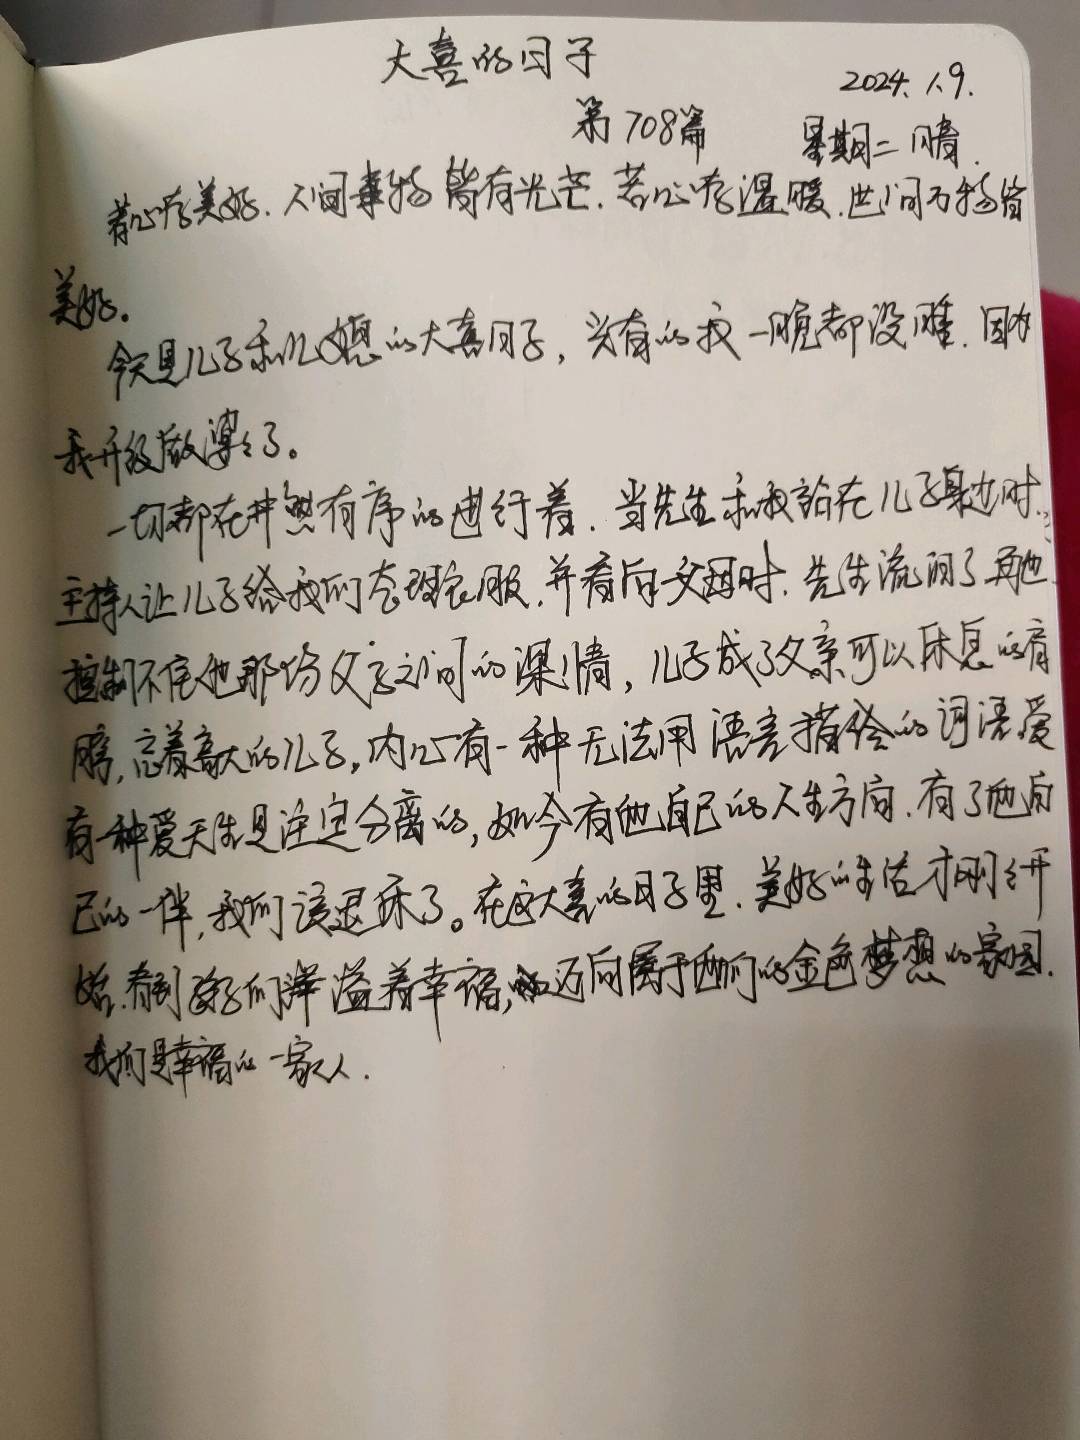 大喜的日子
2024.1.9.
第708篇
星期二 晴.
若心存美好.人间事物皆有光芒.若心存温暖.世间万物皆
美好。
今天是儿子和儿媳的大喜日子，兴奋的我一晚都没睡.因为
我升级做婆婆了。
一切都在井然有序的进行着.当先生和我站在儿子身边时.
主持人让儿子给我们整理衣服.并看向父母时.先生流泪了再也
控制不住他那份父子之间的深情，儿子成了父亲可以休息的肩
膀，望着高大的儿子，内心有一种无法用语言描绘的词语爱
有一种爱天生是注定分离的，如今有他自己的人生方向.有了他自
己的一伴，我们该退休了。在这大喜的日子里.美好的生活才刚刚开
始.看到孩子们洋溢着幸福，迈向属于他们的金色梦想的家园.
我们是幸福的一家人.